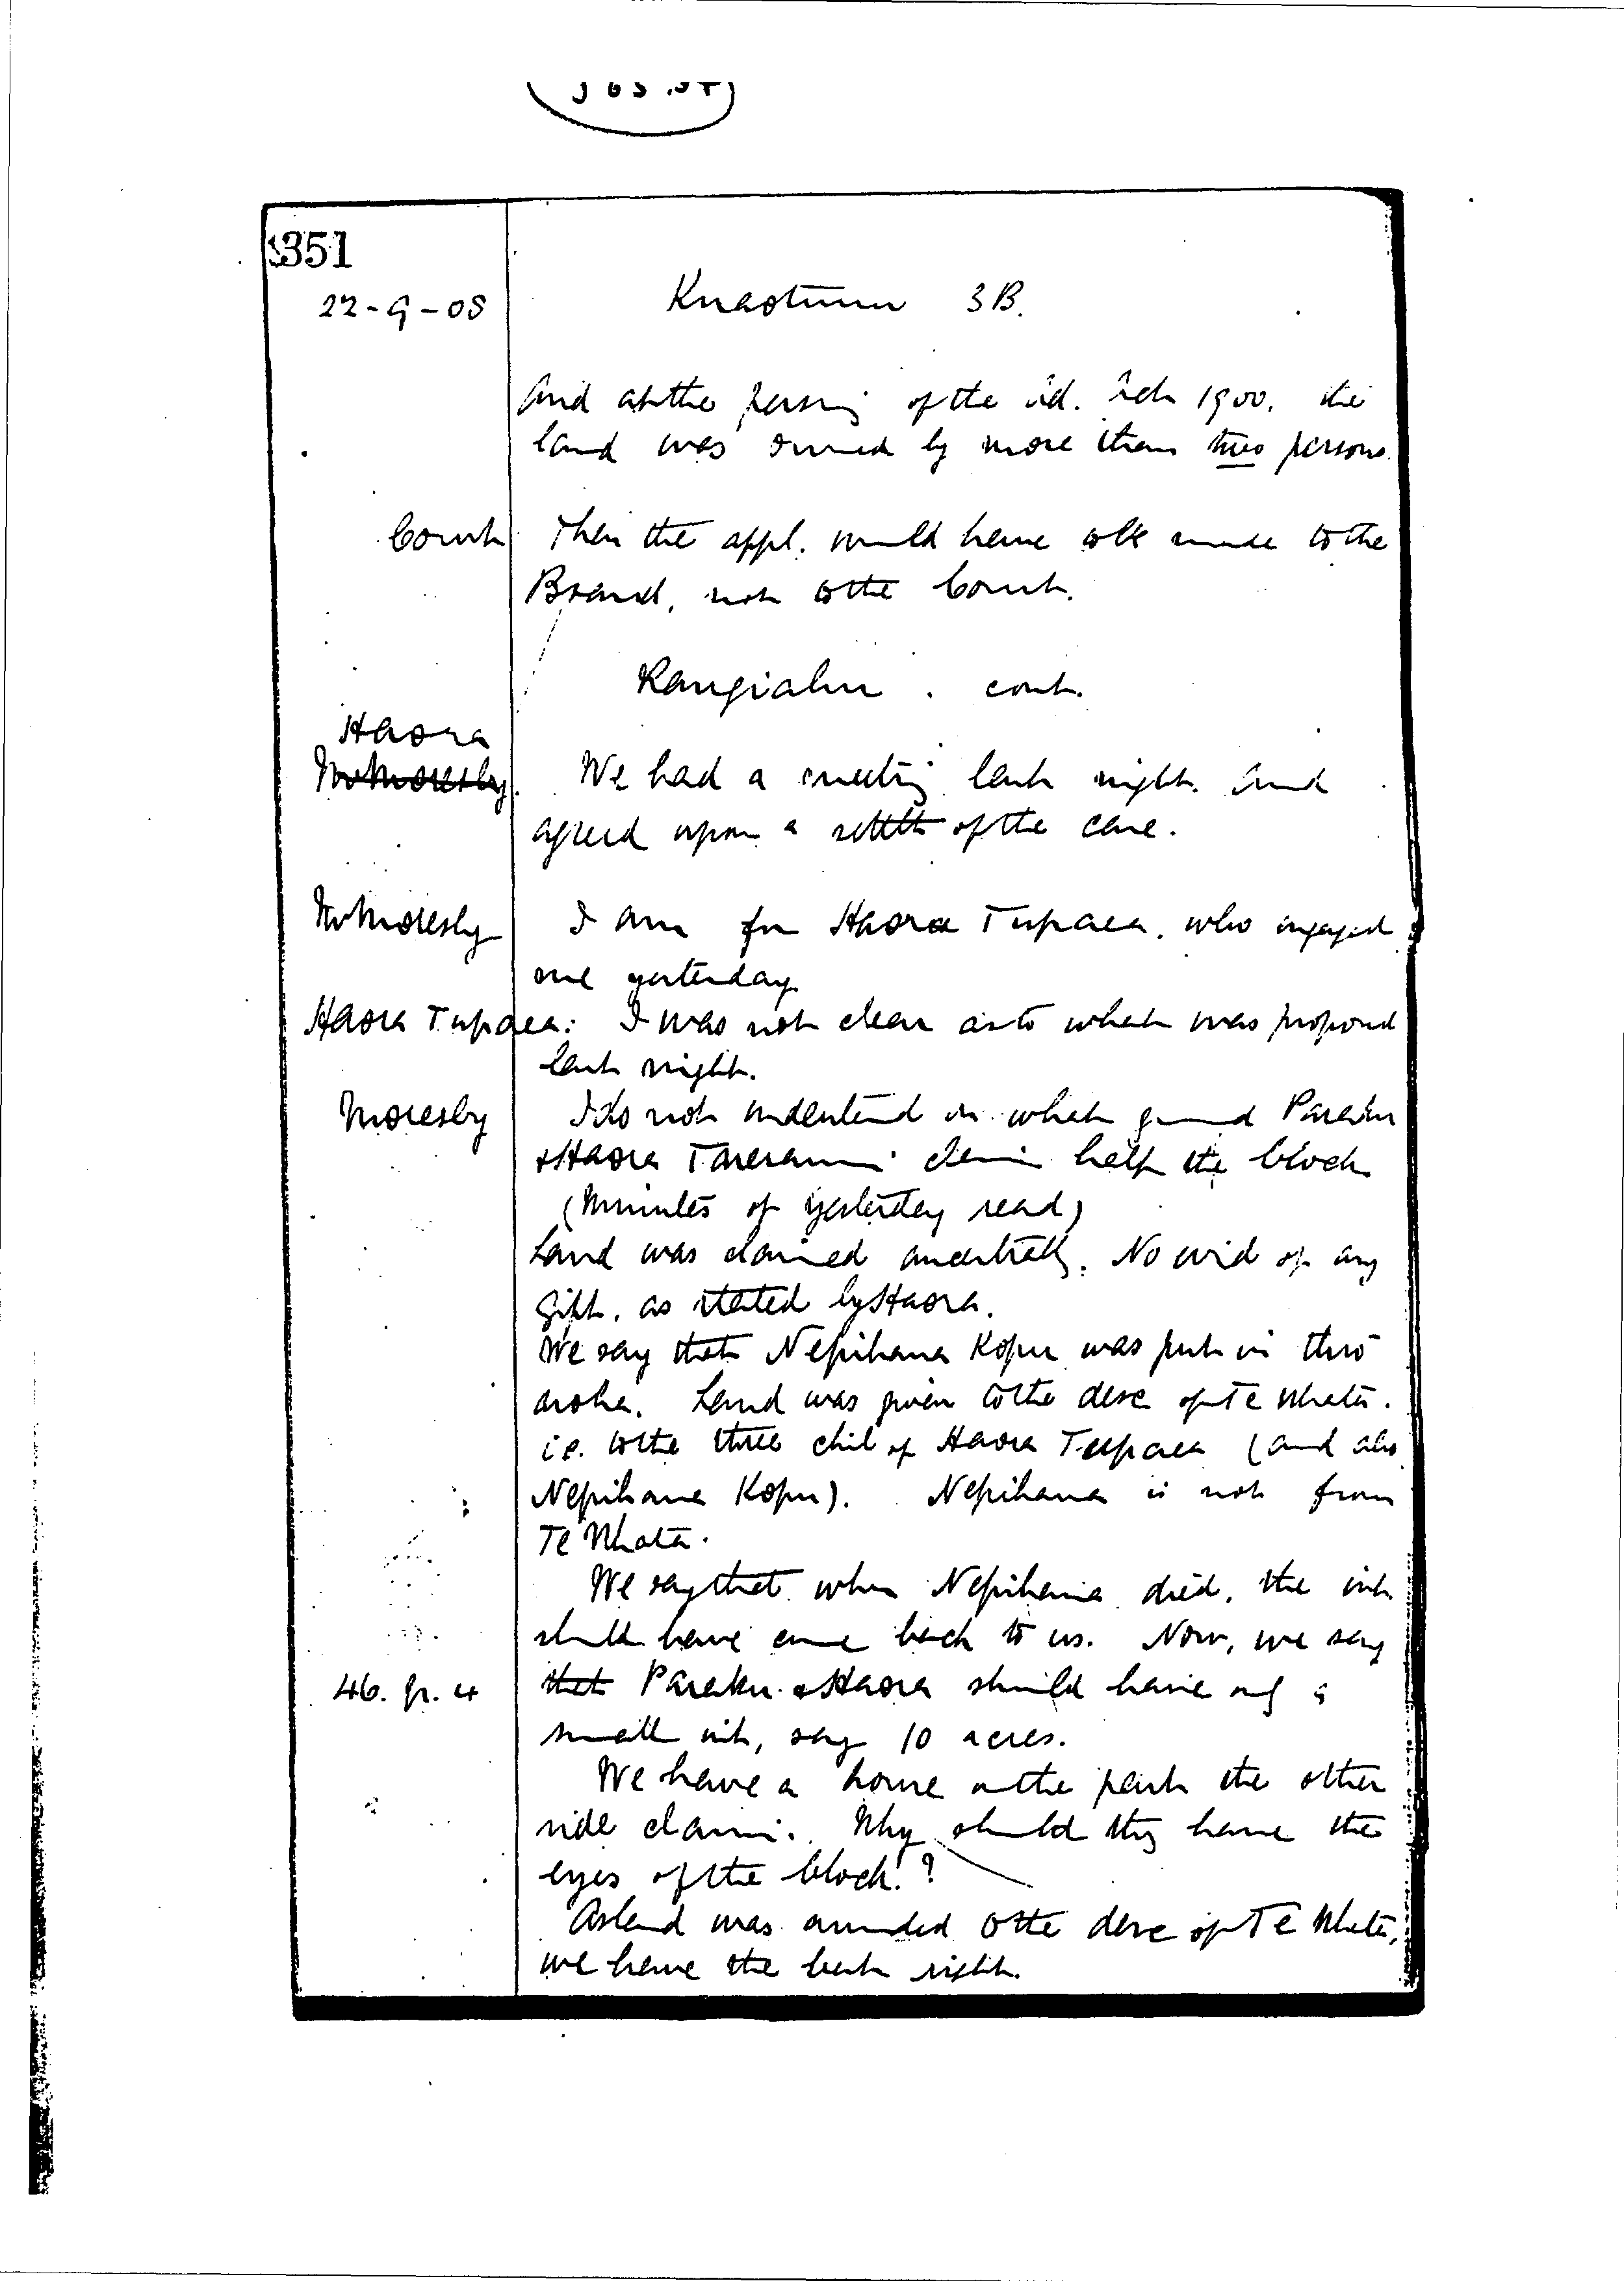 351
22-9-08
Kuaotunu 3B.
And at the passing of the Ad. Act 1900, the
land was owned by more than two persons.
Court Then the appl. would have to be made to the
Board, not to the Court.
Rangiahu. cont.
Haora
Mr Moresby. We had a meeting last night. And
agreed upon a settlt of the case.
Mr Moresby I am for Haora Tupaea, who engaged
me yesterday
Haora Tupaea: I was not clear as to what was proposed
last night.
Moresby I do not understand on what ground Paraku
& Haora Tareranui claim half the block
(Minutes of yesterday read)
Land was claimed ancestrally. No evid of any
Gift, as stated by Haora.
We say that Nepihana Kopu was put in thro
aroha. Land was given to the desc of Te Whata.
i.e. to the three chil of Haora Tupaea (and also
Nepihana Kopu). Nepihana is not from
Te Whata.
We say that when Nepihana died, the int
should have come back to us. Now, we say
46. fr. 4 that Paraku & Haora should have only a
small int, say 10 acres.
We have a house on the part the other
side claim. Why should they have the
eyes of the block?
As land was awarded to the desc of Te Whata,
we have the best right.